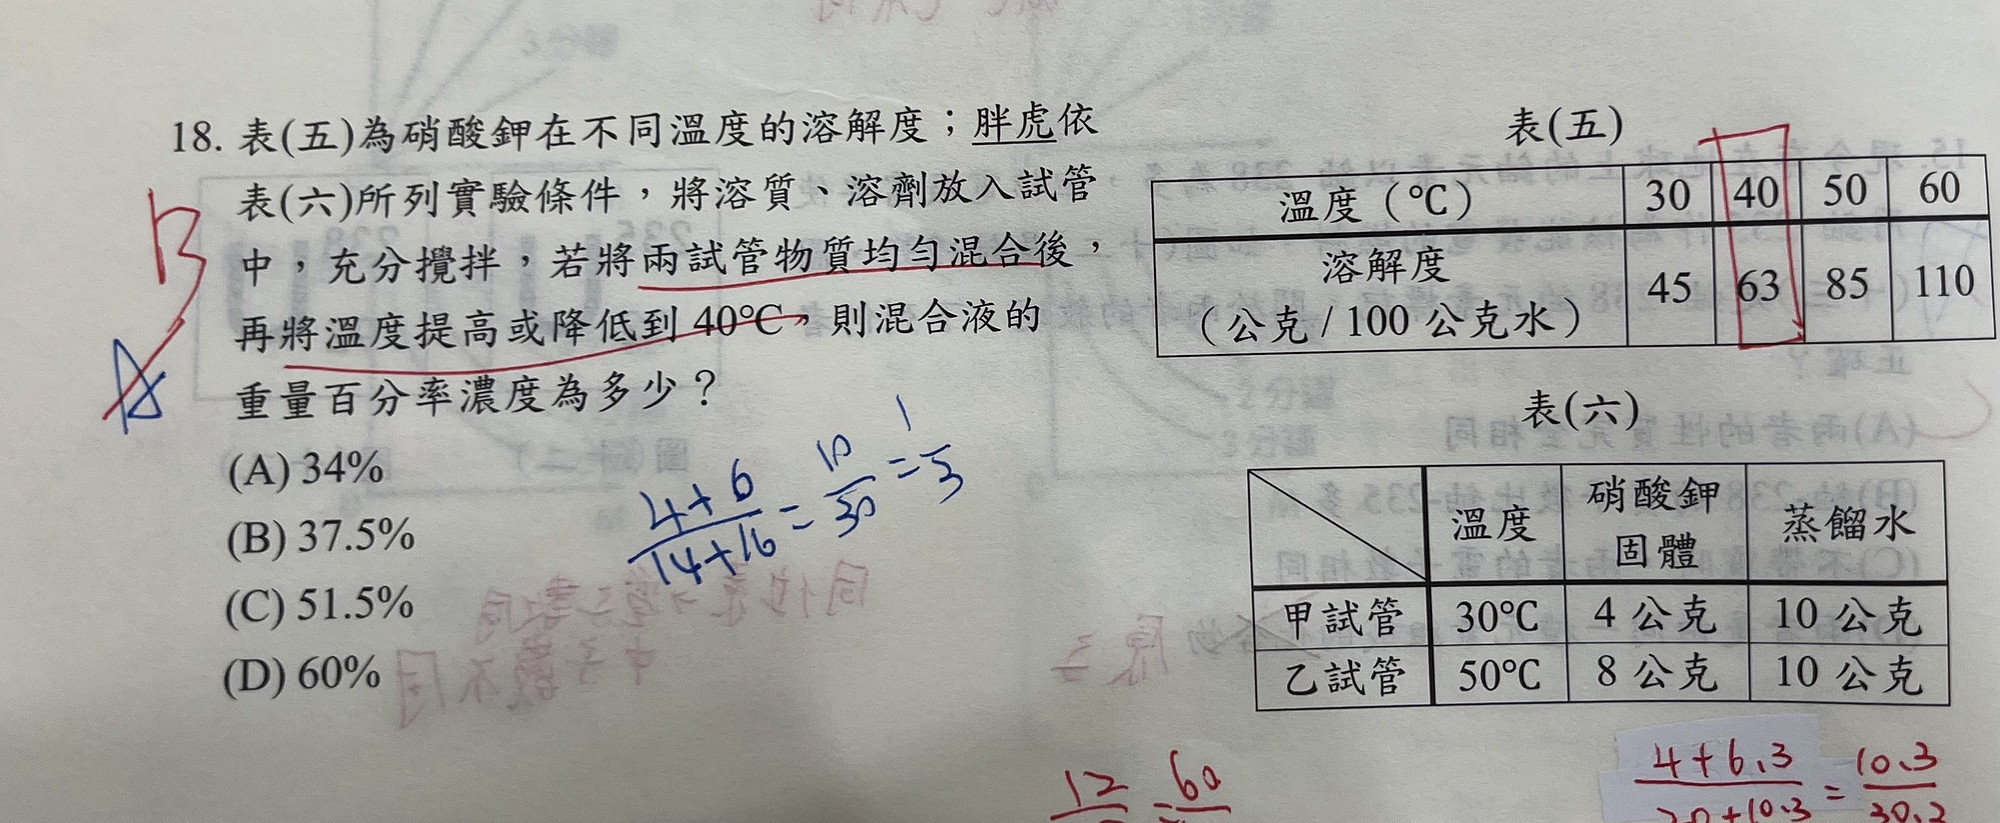 18. 表(五)為硝酸鉀在不同溫度的溶解度；胖虎依
表(六)所列實驗條件，將溶質、溶劑放入試管
中，充分攪拌，若將兩試管物質均勻混合後，
再將溫度提高或降低到 40℃，則混合液的
重量百分率濃度為多少？
(A) 34%
(B) 37.5%
(C) 51.5%
(D) 60%
B
A
4+6/14+16 = 10/30 = 1/3
表(五)
溫度（℃） 30 40 50 60
溶解度
（公克 / 100 公克水） 45 63 85 110
表(六)
溫度 硝酸鉀固體 蒸餾水
甲試管 30℃ 4 公克 10 公克
乙試管 50℃ 8 公克 10 公克
12 = 60
4+6.3/20+10.3 = 10.3/30.3